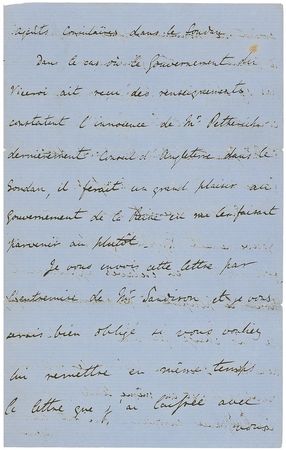 agents consulaires dans le Soudan
Dans le cas où le Gouvernement du
Viceroi ait reçu des renseignements
constatant l'innocence de Mr Petherick
dernièrement Consul d'Angleterre dans le
Soudan, il ferait un grand plaisir au
Gouvernement de la Reine en me les faisant
parvenir au plutôt
Je vous envois cette lettre par
l'entremise de Mr Sanderson et je vous
serais bien obligé si vous vouliez
lui remettre en même temps
la lettre que j'ai laissée avec
vous